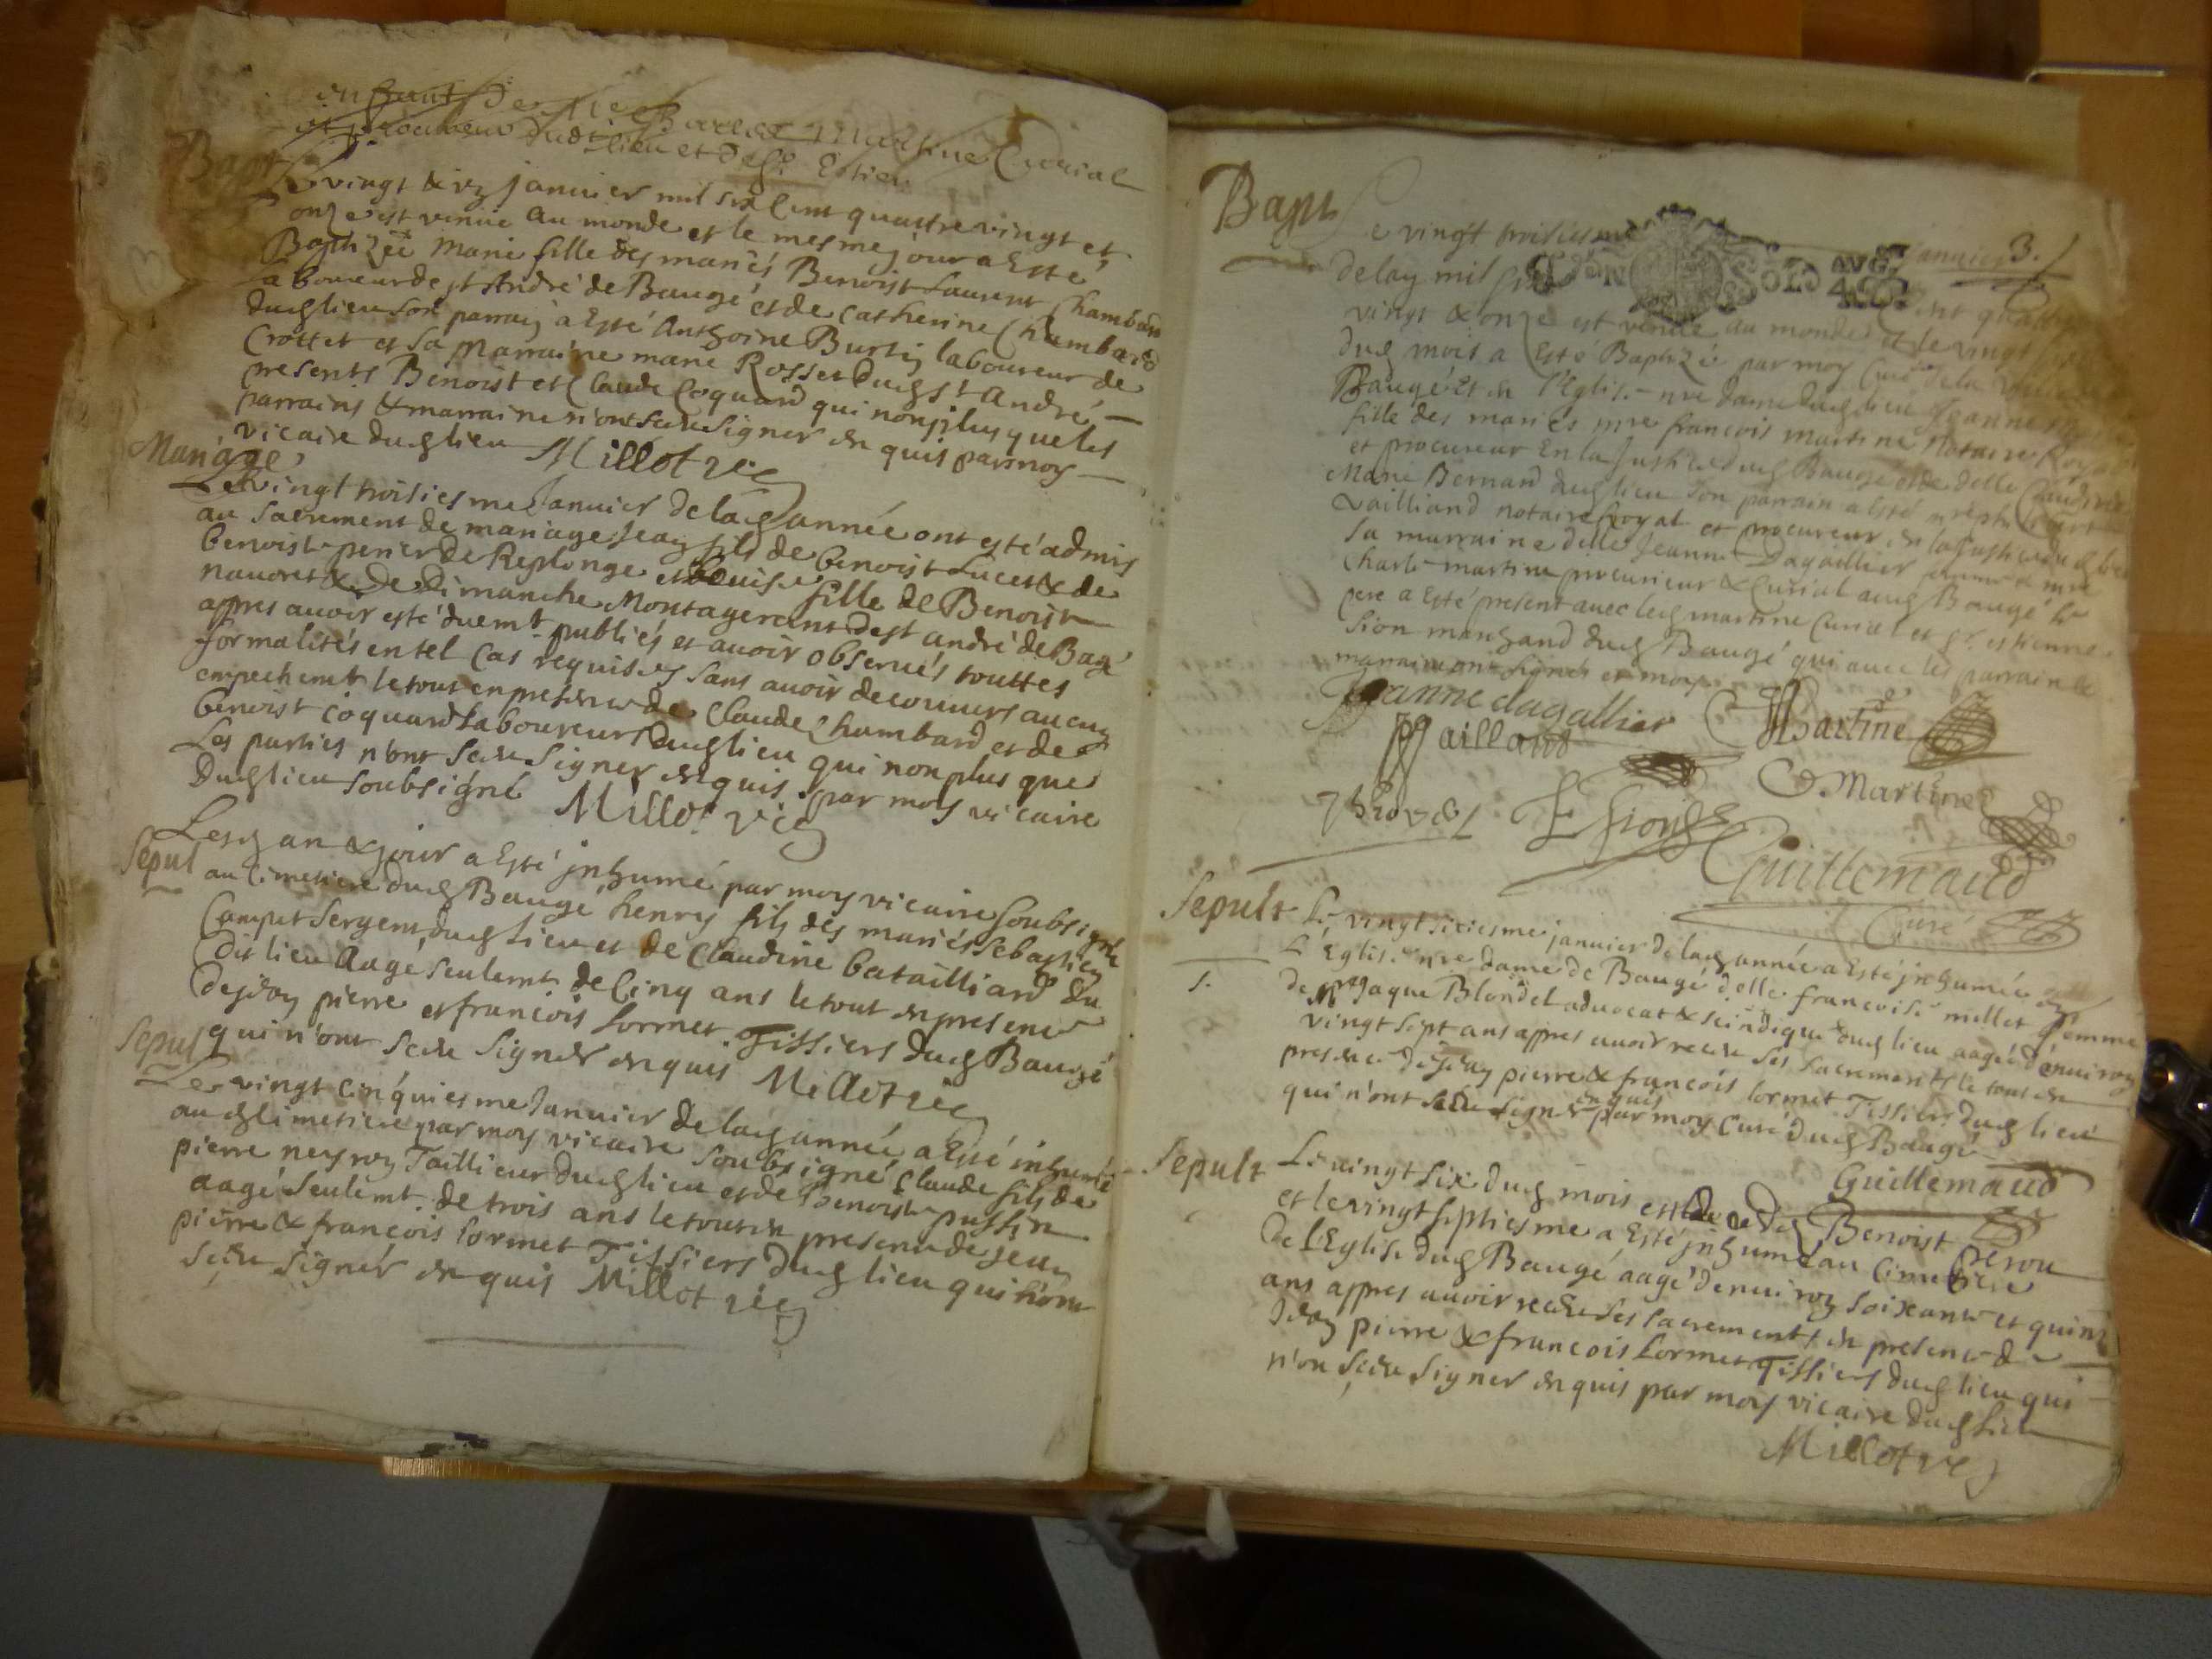 enfant de Me Charles Martine Curial
et procureur dudt lieu et de Estien
Bapt
Le vingt & un janvier mil six cent quattre vingt et
onze est venue au monde et le mesme jour a Esté
Baptizée Marie fille des mariés Benoist Laurent Chambard
laboureur de st André de Baugé et de Catherine Chambard
dud lieu son parrain à Esté Anthoine Burtin laboureur de
Crottet et sa Marraine marie Rosset dud st André
presents Benoist et Claude Coquard qui non plus que les
parrains & marraine n'ont sceu signer enquis par moy
vicaire dud lieu Millot vic
Mariage
Le vingt troisiesme Janvier de lad année ont esté admis
au sacrement de mariage Jean fils de benoist Lucet & de
benoiste perier de Replonge et Louise fille de Benoist
nauoret & de Dimanche Montagerant de st andré de Bagé
appres avoir esté duemt publiés et avoir observés touttes
formalités en tel cas requises sans avoir decouvers aucun
empechemt le tout en presence de Claude Chambard et de
benoist coquard laboureurs dud lieu qui non plus que
Les parties n'ont sceu signer enquis par moy vicaire
dud lieu soubsigné Millot vic
Sepul
Lesd an & jour a Esté inhumé par moy vicaire soubsigné
au cimetiere dud Baugé henry fils des mariés Sebastien
Camput sergent dud lieu et de Claudine batailliard du
dit lieu aagé seulemt de cinq ans le tout en presence
de jean pierre et francois Lormet Tissiers dud Baugé
qui n'ont sceu signer enquis Millot vic
Sepul
Le vingt cinquiesme Janvier de lad année a Esté inhumé
aud cimetiere par moy vicaire soubsigné Claude fils de
pierre neyron Taillieur dud lieu et de benoiste puffin
aagé seulemt de trois ans le tout en presence de jean
pierre & francois Lormet Tissiers dud lieu qui n'ont
sceu signer enquis Millot vic
3.
Bapt
Le vingt troisiesme Janvier
de lad mil six GEN DIX SOLD AVG 4 Cent quattre
vingt & onze est venue au monde et le vingt
dud mois a Esté Baptizé par moy Curé de la ville de
Baugé Et en l'Eglise nre dame dud lieu Jeanne
fille des mariés mre francois martine Notaire Royal
et procureur En la Justice dud Baugé et de delle Claudine
Marie Bernard dud lieu son parrain a Esté mre
Vailliand notaire Royal et procureur en la Justice dud lieu
sa marraine delle Jeanne Dagallier femme de mre
Charles martine procurieur & Curial aud Baugé le
pere a Esté present avec led martine Curial et sr. estienne
sion marchand dud Baugé qui avec les parrain &
marraine ont signés et moy
Jeanne dagallier Martine
Vailland
C Martine
E Sion
Guillemaud
Curé
Sepult
Le vingt sixiesme janvier de lad année a Esté inhumée en
L'Eglise nre dame de Baugé delle francoise millet femme
1.
de Mre Jaque Blondel advocat & scindique dud lieu aagée d'environ
vingt sept ans appres avoir receu ses sacrements le tout en
presence de jean pierre & francois Lormet Tissiers dud lieu
qui n'ont sceu signer enquis par moy Curé dud Baugé
Guillemaud
Sepult
Le vingt six dud mois est decedé Benoist perou
et le vingt septiesme a Esté inhumé au Cimetiere
de l'Eglise dud Baugé aagé d'environ soixante et quinze
ans appres avoir receu ses sacrements en presence de
Jean pierre & francois Lormet Tissiers dud lieu qui
n'on sceu signer enquis par moy vicaire dud lieu
Millot vic